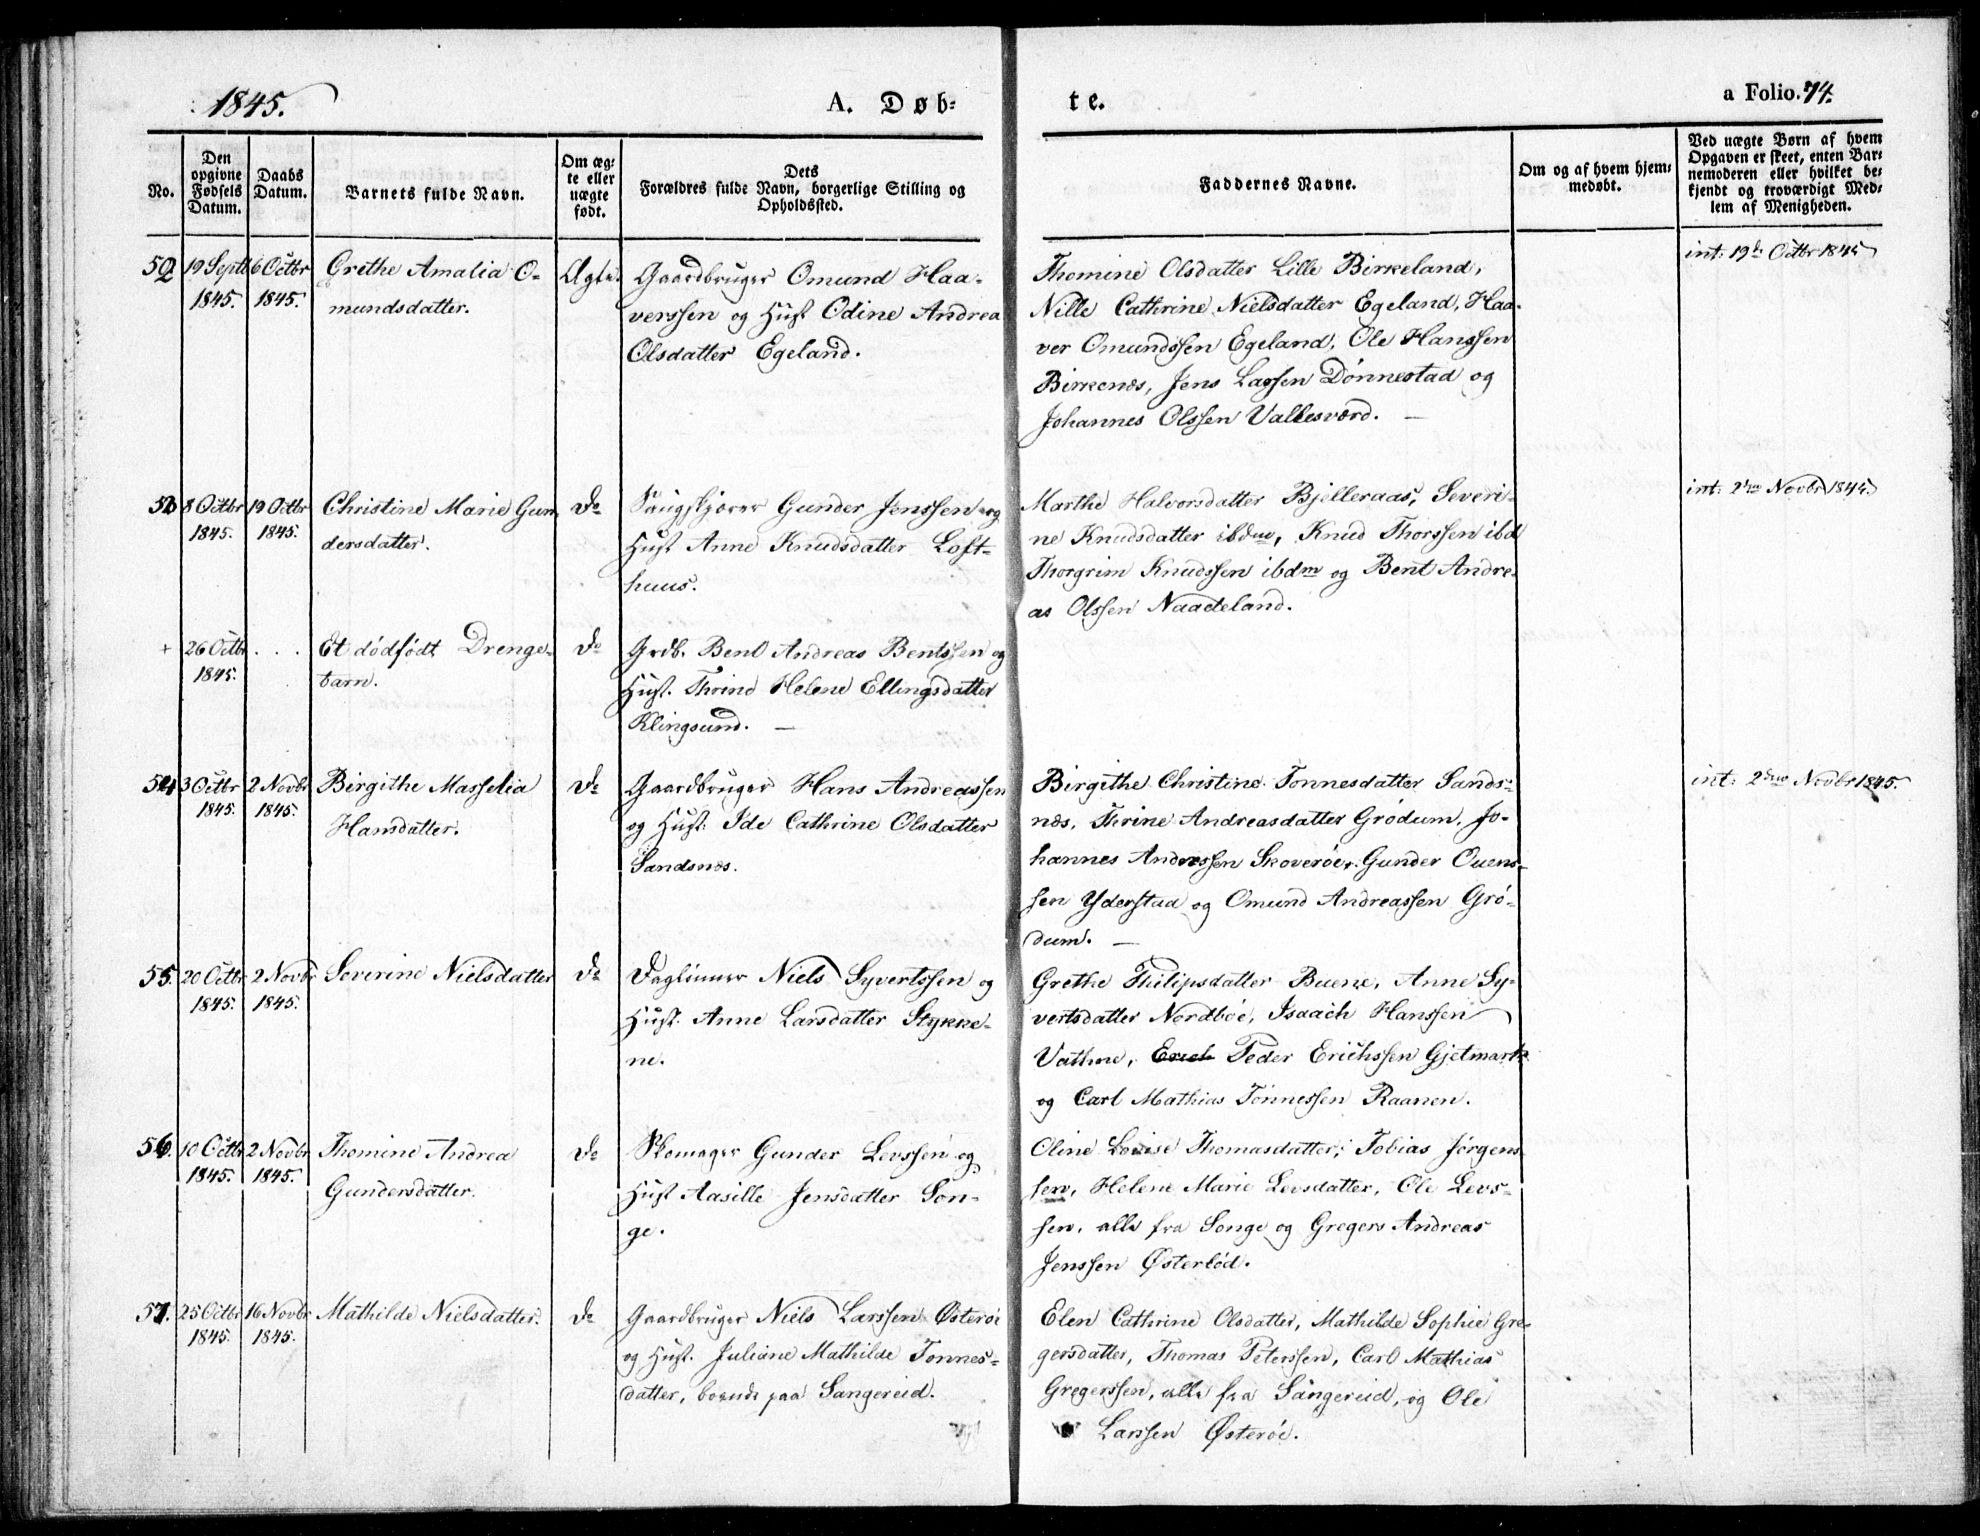 1845.
A. Døb-
te.
a Folio. 74.
No.
Den opgivne Fødsels Datum.
Daabs Datum.
Barnets fulde Navn.
Om ægte eller uægte født.
Dets Forældres fulde Navn, borgerlige Stilling og Opholdssted.
Faddernes Navne.
Om og af hvem hjemmedøbt.
Ved uægte Børn af hvem Opgaven er skeet, enten Barnemoderen eller hvilket bekjendt og troværdigt Medlem af Menigheden.
52 19 Septb 6 Octbr Grethe Amalia O- Ægte. Gaardbruger Omund Haa-
1845. 1845. mundsdatter. verssen og Hust Odine Andrea
Olsdatter Egeland.
Thomine Olsdatter Lille Birkeland,
Nille Cathrine Nielsdatter Egeland, Haa-
ver Omundssen Egeland, Ole Hanssen
Birkenes, Jens Lassen Dønnestad og
Johannes Olssen Vallesværd. —
int: 19de Octbr 1845
53 8 Octbr 19 Octbr Christine Marie Gun- Do Saugskjører Gunder Jenssen og
1845. 1845. dersdatter. Hust Anne Knudsdatter Loft-
huus.
Marthe Halvorsdatter Bjelleraas, Severi-
ne Knudsdatter ibdm, Knud Thorssen ibd
Thorgrim Knudssen ibdm og Bent Andre-
as Olssen Naadeland.
int: 2den Novbr 1845.
+ 26 Octbr . . . Et dødfødt Drenge- Do Grdb. Bent Andreas Bentssen og
1845. barn. Hust. Thrine Helene Ellingsdatter
Klingsund. —
54 3 Octbr 2 Novbr Birgithe Masselia Do Gaardbruger Hans Andreassen
1845. 1845. Hansdatter. og Hust: Ide Cathrine Olsdatter
Sandsnes.
Birgithe Christine Tonnesdatter Sands-
nes, Thrine Andreasdatter Grødum, Jo-
hannes Anderssen Skoverøe, Gunder Ouens-
sen Yderstad og Omund Andreassen Grø-
dum. —
int: 2den Novbr 1845.
55. 20 Octbr 2 Novbr Severine Nielsdatter Do Daglønner Niels Syvertssen og
1845. 1845. Hust. Anne Larsdatter Stykke-
ne.
Grethe Philipsdatter Buene, Anne Sy-
vertsdatter Nordbøe, Isaach Hanssen
Vathne, Erich Peder Erichssen Gjetmark
og Carl Mathias Tønnessen Raanen.
56. 10 Octbr 2 Novbr Thomine Andrea Do Skomager Gunder Levssen og
1845. 1845. Gundersdatter. Hust Aasille Jensdatter Son-
ge.
Oline Lovise Thomasdatter, Tobias Jørgens-
sen, Helene Marie Levsdatter, Ole Levs-
sen, alle fra Songe og Gregers Andreas
Jenssen Østerlød.
57. 25 Octbr 16 Novbr Mathilde Nielsdatter. Do Gaardbruger Niels Larssen Østerøe
1845. 1845. og Hust. Juliane Mathilde Tonnes-
datter, boende paa Sangereid.
Elen Cathrine Olsdatter, Mathilde Sophie Gre-
gersdatter, Thomas Peterssen, Carl Mathias
Gregerssen, alle fra Sangereid, og Ole
Larssen Østerøe.